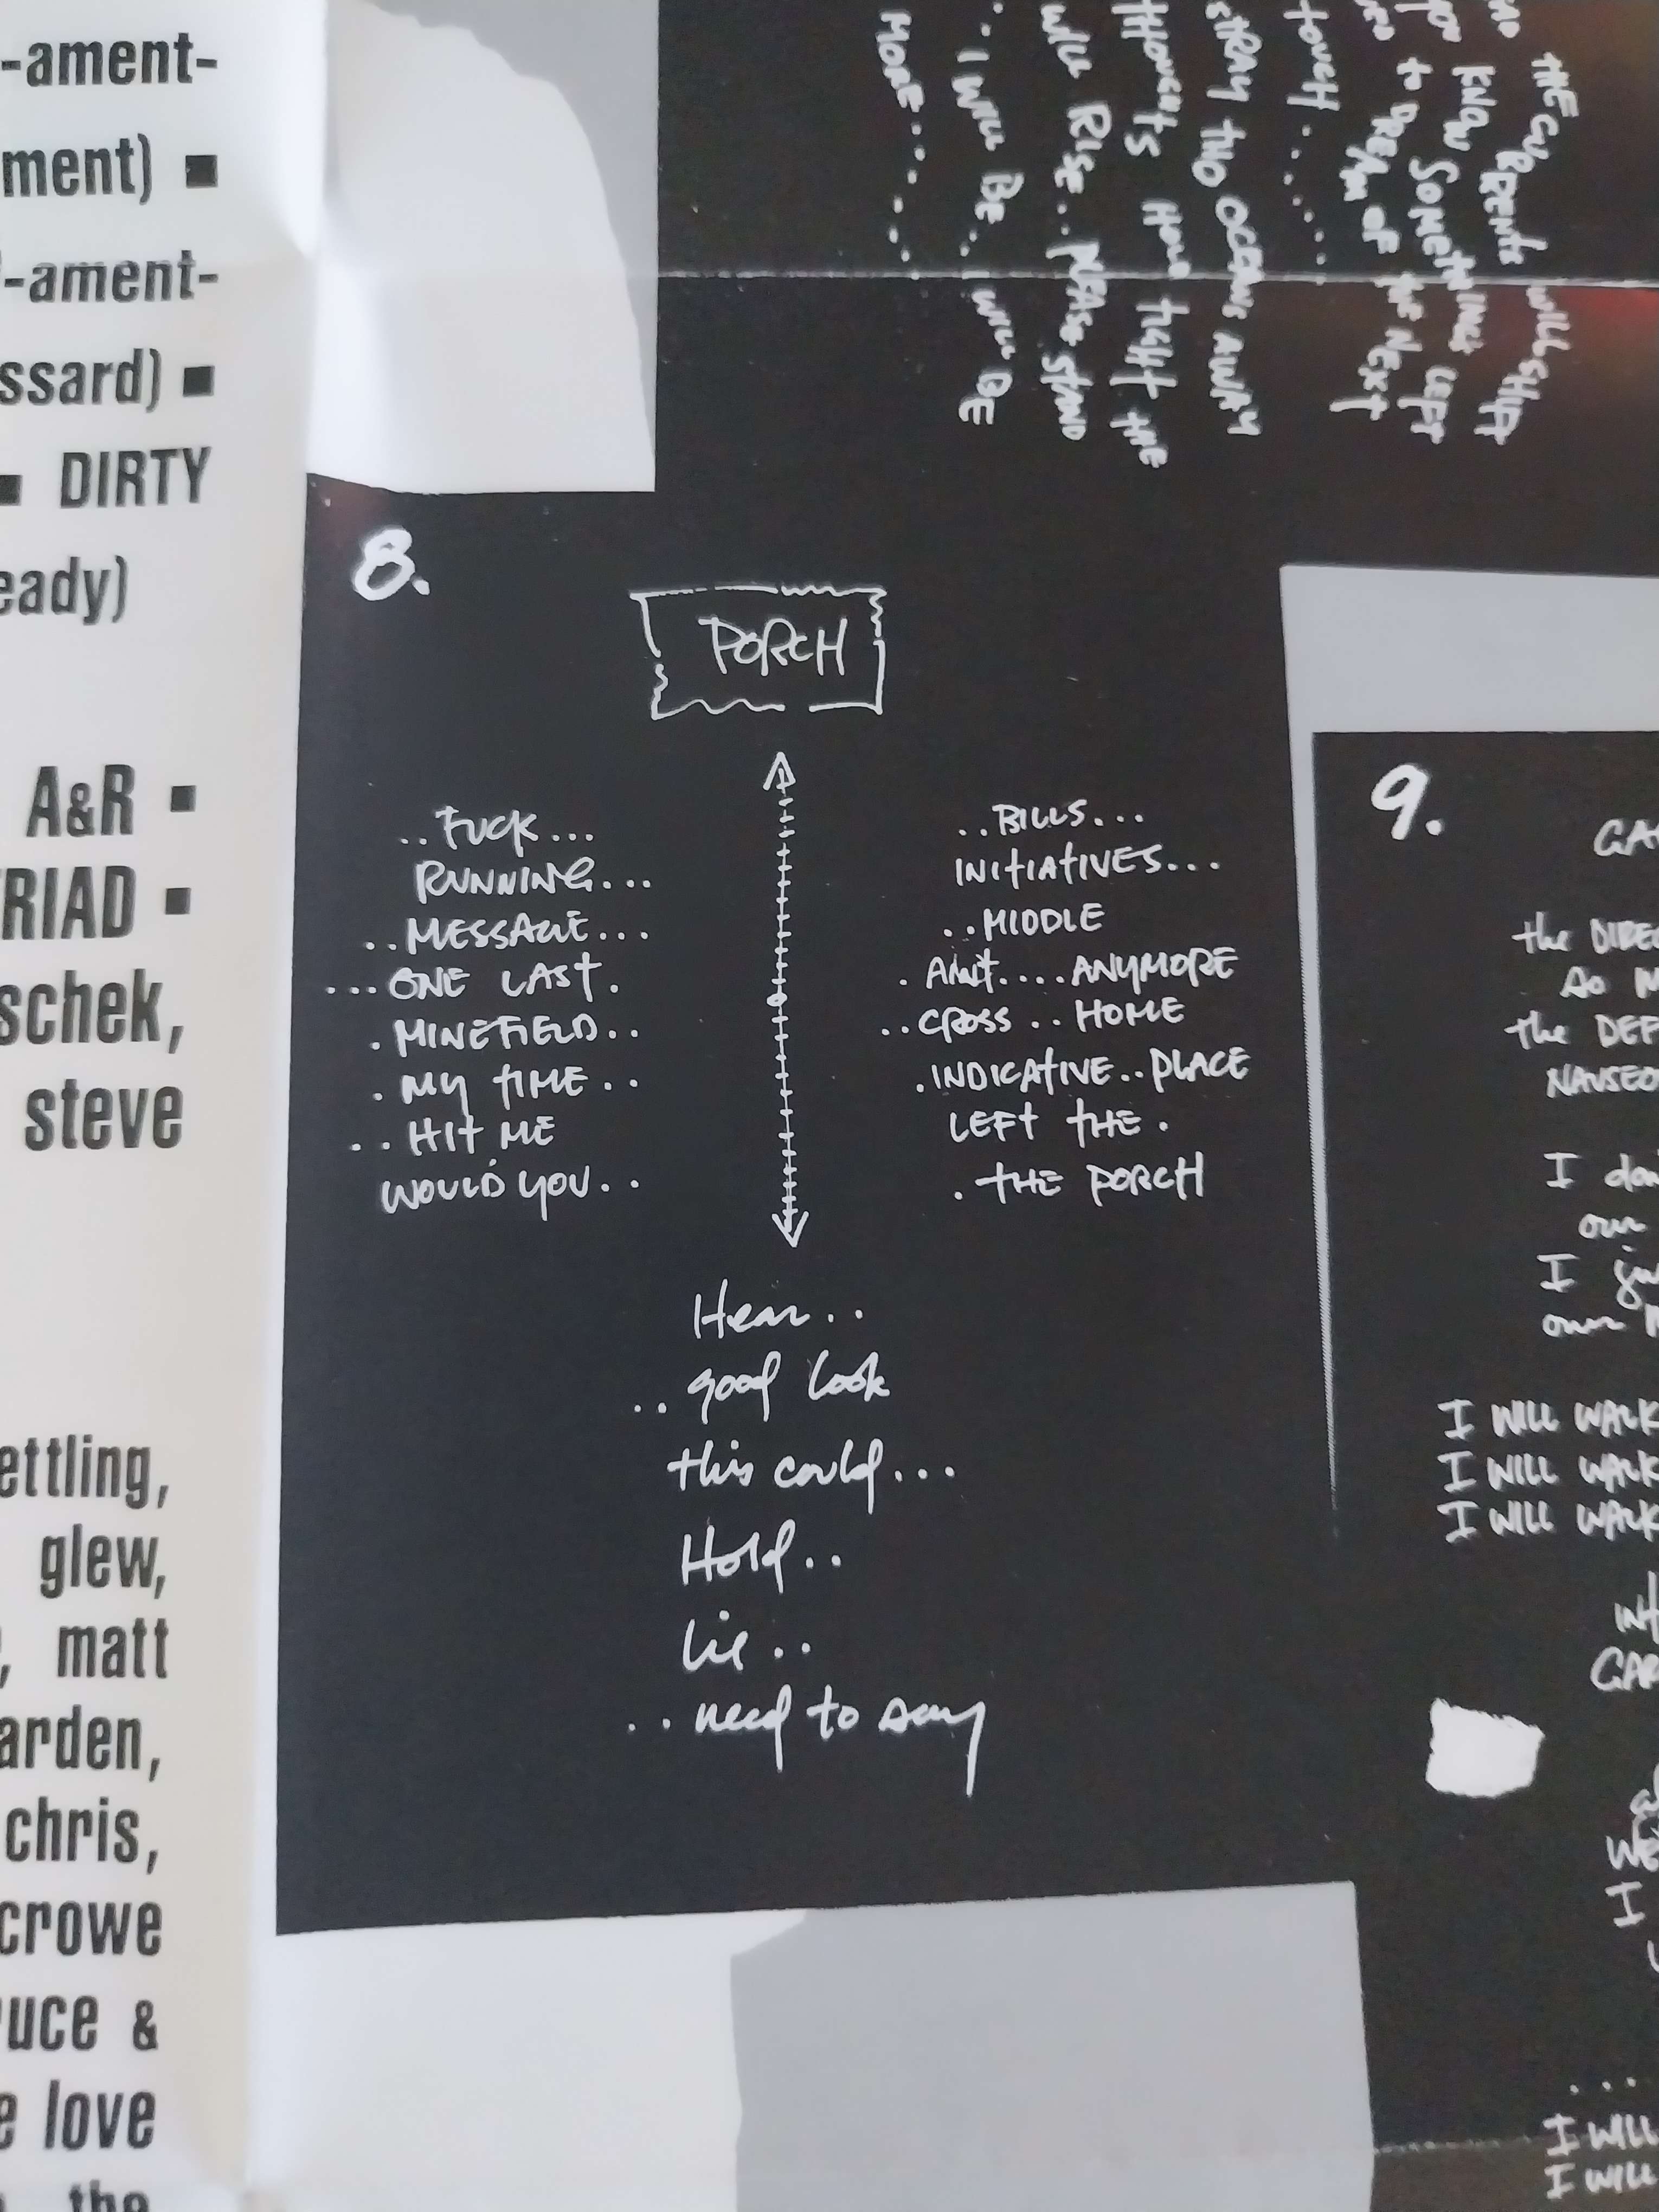 -ament-
ment) ■
-ament-
ssard) ■
■ DIRTY
eady)
A&R ■
RIAD ■
schek,
steve
ettling,
glew,
matt
arden,
chris,
crowe
uce &
love
the
THE CURRENTS WILL SHIFT
KNOW SOMETHING LEFT
to DREAM OF the NEXT
TOUCH........
STRAY TWO OCEANS AWAY
THOUGHTS HOLD TIGHT THE
WILL RISE.. PLEASE STAND
.. I WILL BE... I WILL BE
MORE.........
8.
PORCH
..FUCK...
RUNNING...
..MESSAGE...
...ONE LAST.
.MINEFIELD..
.MY TIME..
..HIT ME
WOULD YOU..
..BILLS...
INITIATIVES...
..MIDDLE
.AIN'T....ANYMORE
..CROSS..HOME
.INDICATIVE..PLACE
LEFT THE.
.THE PORCH
Hear..
..good look
this could...
Hold..
Lie..
..need to say
9.
GA
the DIREC
AO M
the DEF
NAUSEO
I don
our
I
our
I WILL WALK
I WILL WALK
I WILL WALK
GAR
WE
I
...
I WILL
I WILL